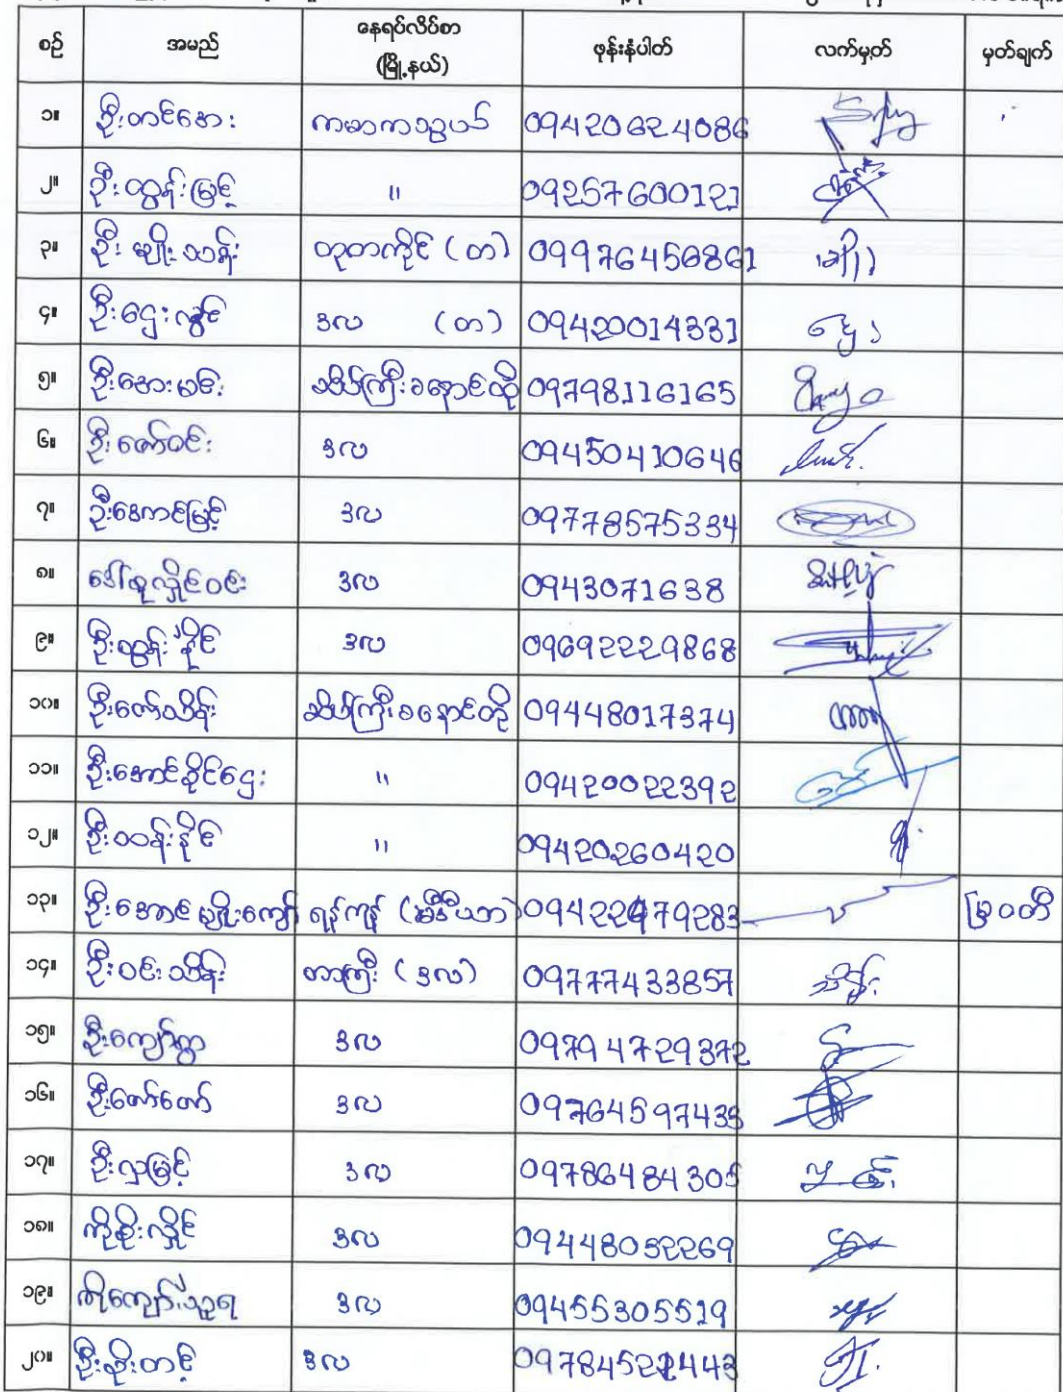 စဉ် အမည် နေရပ်လိပ်စာ (မြို့နယ်) ဖုန်းနံပါတ် လက်မှတ် မှတ်ချက်
၁။ ဦးတင်အေး ကမာကသွယ် 09420624086
၂။ ဦးထွန်းမြင့် " 09257600121
၃။ ဦးမျိုးသန်း တွတကိုင် (တ) 09976456861
၄။ ဦးဌေးလွင် ဒလ (တ) 09420014331
၅။ ဦးအေးမင်း ဆိပ်ကြီးခနောင်တို 09798116165
၆။ ဦးဇော်ဝင်း ဒလ 09450410646
၇။ ဦးအောင်မြင့် ဒလ 09778575334
၈။ ဒေါ်စုလှိုင်ဝင်း ဒလ 0943071638
၉။ ဦးထွန်းနိုင် ဒလ 09692229868
၁၀။ ဦးဇော်သိန်း ဆိပ်ကြီးခနောင်တို 09448017374
၁၁။ ဦးအောင်ခိုင်ဌေး " 09420022392
၁၂။ ဦးသန်းနိုင် " 09420260420
၁၃။ ဦးအောင်မျိုးကျော် ရန်ကုန် (မီဒီယာ) မြဝတီ
၁၄။ ဦးဝင်းသိန်း တာကြီး (ဒလ) 09777433857
၁၅။ ဦးကျော်ကွာ ဒလ 09794729372
၁၆။ ဦးဇော်ဇော် ဒလ 09764597435
၁၇။ ဦးလှမြင့် ဒလ 09786484305
၁၈။ ကိုစိုးလှိုင် ဒလ 09448052269
၁၉။ ကိုကျော်သူရ ဒလ 09455305519
၂၀။ ဦးစိုးတင့် ဒလ